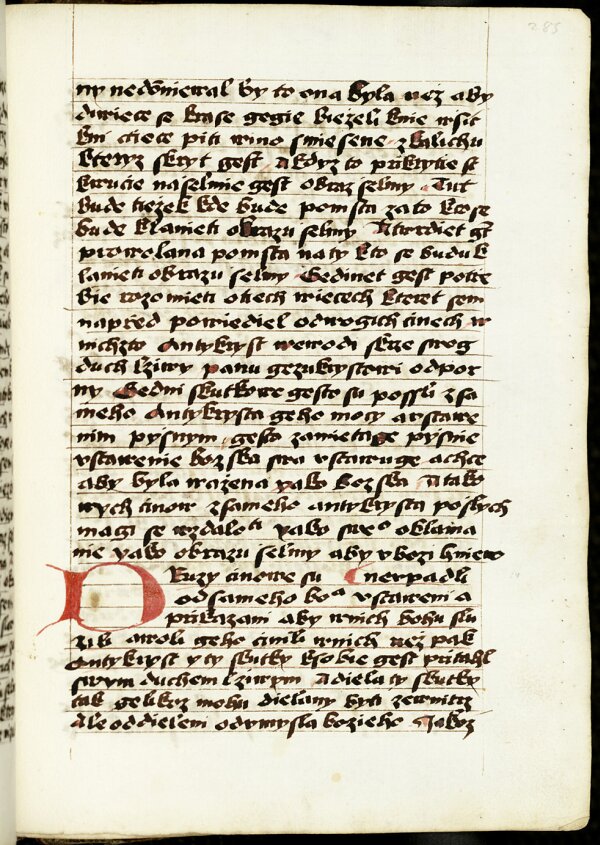 285
ny nedomniewal by to ona byla nez aby
dwiece se krase gegie biezeli knie wsit
kni chtiece piti wino smiesene z kalichu
kteryz skryt gest A kdyz to prikrytie st
krucie naselmie gest obraz selmy Tut
bude tiezek kde bude pomsta zato ktose
bude klanieti obrazu selmy A twrdiet gt
prowolana pomsta na ty kto se budu k
lanieti obrazu selmy Gedinet gest potre
bie rozomieti otiech wiecech kteret sem
napřed powiediel odwogich cinech w
nichzto Antykryst wewodi skrze swog
duch lziwy panu gezukrystowi odpor
ny Gedni skutkowe gesto su possli zsa
meho Antykrysta geho mocy a wstawe
nim pysnym gesto zamietage pysnie
vstawenie bozska swa vstawuge a chce
aby byla wazena yako bozska A tako
wych cinow zsameho antykrysta poslych
magi se wzdaloti yako swe° oklama
nie yako obrazu selmy aby vbozi hniew
Druzy cinowe su Gnerpadli
od sameho bo° vstaweni a
prikazani aby wnich bohu slu
zili a woli geho cinili wnich nez pak
Antykryst y ty skutky ksobie gest pritahl
swym duchem lziwym A diela ty skutky
tak gelikoz mohu dielany byti zewnitrz
Ale oddieleni od vmysla bozieho Jakoz